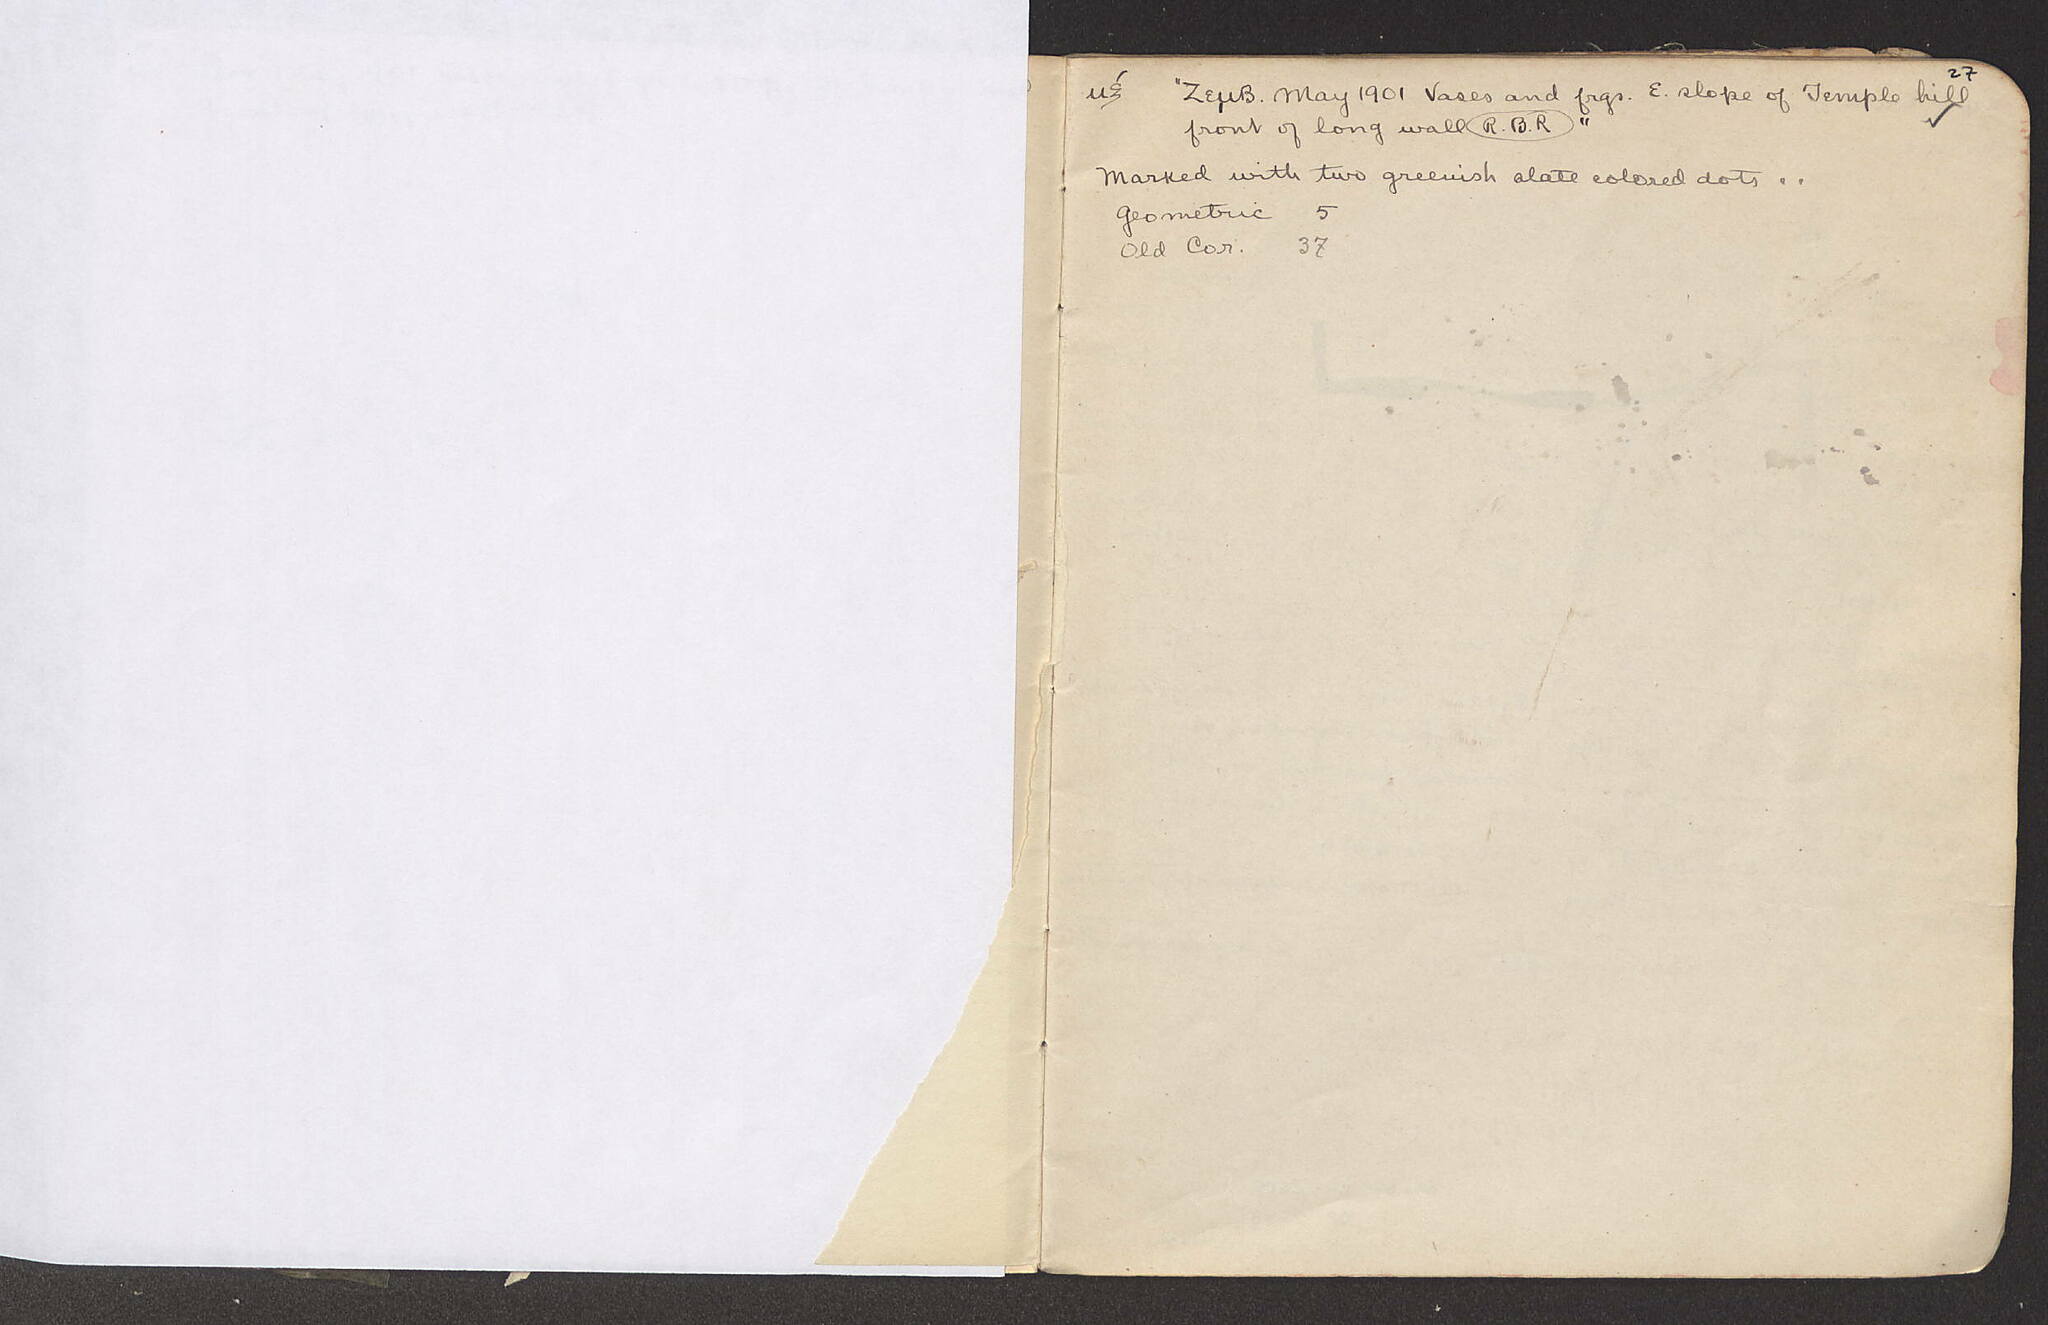 27
μξ "ZεμB. May 1901 Vases and frgs. E. slope of Temple hill
front of long wall R.B.R"
Marked with two greenish slate colored dots ..
Geometric 5
Old Cor. 37